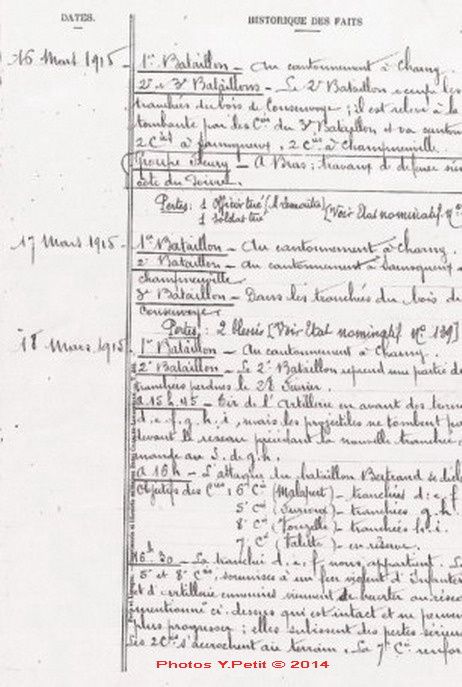 DATES.
HISTORIQUE DES FAITS
16 Mars 1915 -
1er Bataillon - Au cantonnement à Charny.
2e et 3e Bataillons - Le 2e Bataillon occupe les
tranchées du bois de Consenvoye ; il est relevé à la
tombante par les Cies du 3e Bataillon et va
2 Cies à Samogneux, 2 Cies à Champneuville.
Groupe Fleury - A Bras ; travaux de défense
côte du
Pertes : 1 officier tué [Voir Etat nominatif n°
1 soldat tué
17 Mars 1915 -
1er Bataillon - Au cantonnement à Charny.
2e Bataillon - au cantonnement à Samogneux
Champneuville
3e Bataillon - Dans les tranchées du bois de
Consenvoye
Pertes : 2 blessés [Voir Etat nominatif n° 139]
18 Mars 1915
1er Bataillon - Au cantonnement à Charny.
2e Bataillon - Le 2e Bataillon reprend une partie de
tranchées perdues le 28 Février.
A 15h.45 - Tir de l'Artillerie en avant des
d. e. f. g. h. i, mais les projectiles ne tombent
devant le réseau précédant la nouvelle tranchée,
au S. de g. h.
A 16h - L'attaque du bataillon Bertrand se
Objectifs des Cies : 6e Cie (Malapert) - tranchées d. e. f
5e Cie - tranchées g. h.
8e Cie - tranchées h. i.
7e Cie - en réserve.
16h.30 - La tranchée d. e. f. nous appartient.
5e et 8e Cies, soumises à un feu violent d'Infanterie
et d'artillerie ennemies viennent de heurter au
mentionné ci-dessus qui est intact et ne peuvent
plus progresser ; elles subissent des pertes
Les 2 Cies s'accrochent au terrain. La 7e Cie
Photos Y.Petit © 2014